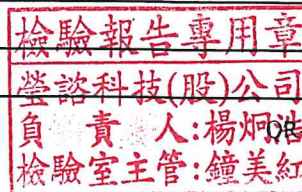 檢驗報告專用章
瑩諮科技(股)公司
負責人:楊炯浩
檢驗室主管:鐘美紅